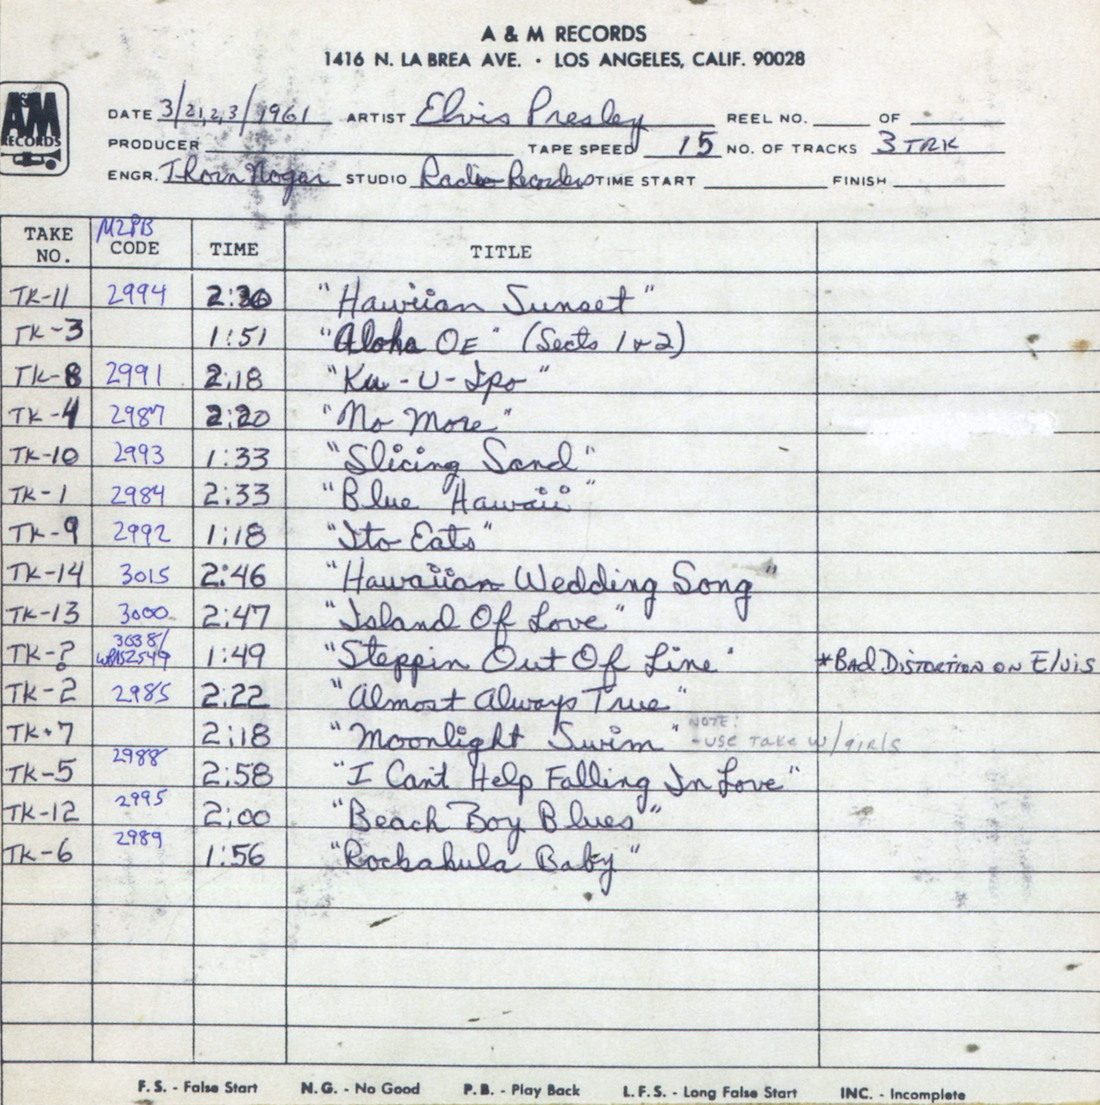 A & M RECORDS
1416 N. LA BREA AVE. • LOS ANGELES, CALIF. 90028
A&M RECORDS
DATE 3/21,2,3/1961 ARTIST Elvis Presley REEL NO. OF
PRODUCER TAPE SPEED 15 NO. OF TRACKS 3 TRK
ENGR. Thorn Nogar STUDIO Radio Recorders TIME START FINISH
TAKE NO. M2PB CODE TIME TITLE
TK-11 2994 2:30 "Hawiian Sunset"
TK-3 1:51 "Aloha OE" (Sects 1&2)
TK-8 2991 2:18 "Ku-U-Ipo"
TK-4 2987 2:20 "No More"
TK-10 2993 1:33 "Slicing Sand"
TK-1 2984 2:33 "Blue Hawaii"
TK-9 2992 1:18 "Ito Eats"
TK-14 3015 2:46 "Hawaiian Wedding Song"
TK-13 3000 2:47 "Island Of Love"
TK-? 3038/ 1:49 "Steppin Out Of Line" *Bad Distortion on Elvis
TK-2 2985 2:22 "Almost Always True"
TK-7 2:18 "Moonlight Swim" NOTE: -use Take w/girls
TK-5 2988 2:58 "I Can't Help Falling In Love"
TK-12 2995 2:00 "Beach Boy Blues"
TK-6 2989 1:56 "Rockahula Baby"
F.S. - False Start N.G. - No Good P.B. - Play Back L.F.S. - Long False Start INC. - Incomplete